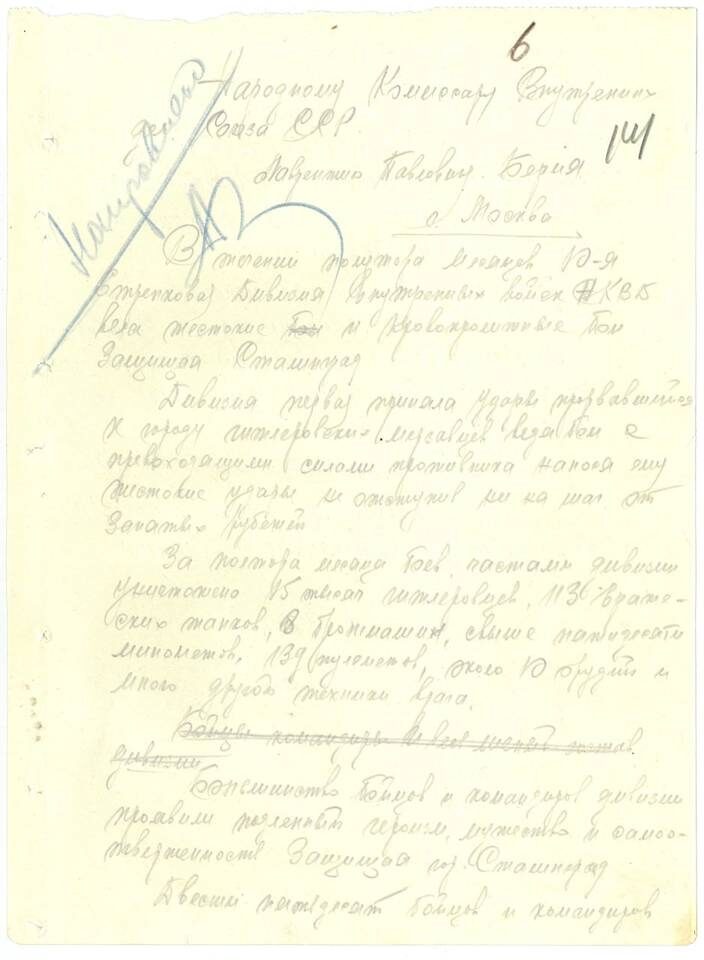 6
Народному Комиссару Внутренних
дел Союза ССР.
141
Лаврентию Павловичу Берия
г. Москва
В течении полутора месяцев 10-я
Стрелковая Дивизия Внутренних войск НКВД
вела жестокие бои и кровопролитные бои
Защищая Сталинград
Дивизия первая приняла удары прорвавшейся
к городу гитлеровских мерзавцев ведя бои с
превоходящими силами противника нанося ему
жестокие удары не отступив ни на шаг от
Занятых рубежей
За полтора месяца боев, частями дивизии
уничтожено 15 тысяч гитлеровцев, 113 враже-
ских танков, 8 бронемашин, свыше пятидесяти
минометов, 139 пулеметов, около 10 орудий и
много другой техники врага.
Бойцы командиры и весь личный состав
дивизии
Большинство бойцов и командиров дивизии
проявили подленный героизм, мужество и самоо-
тверженность Защищая гор. Сталинград
Двести пятьдесят бойцов и командиров